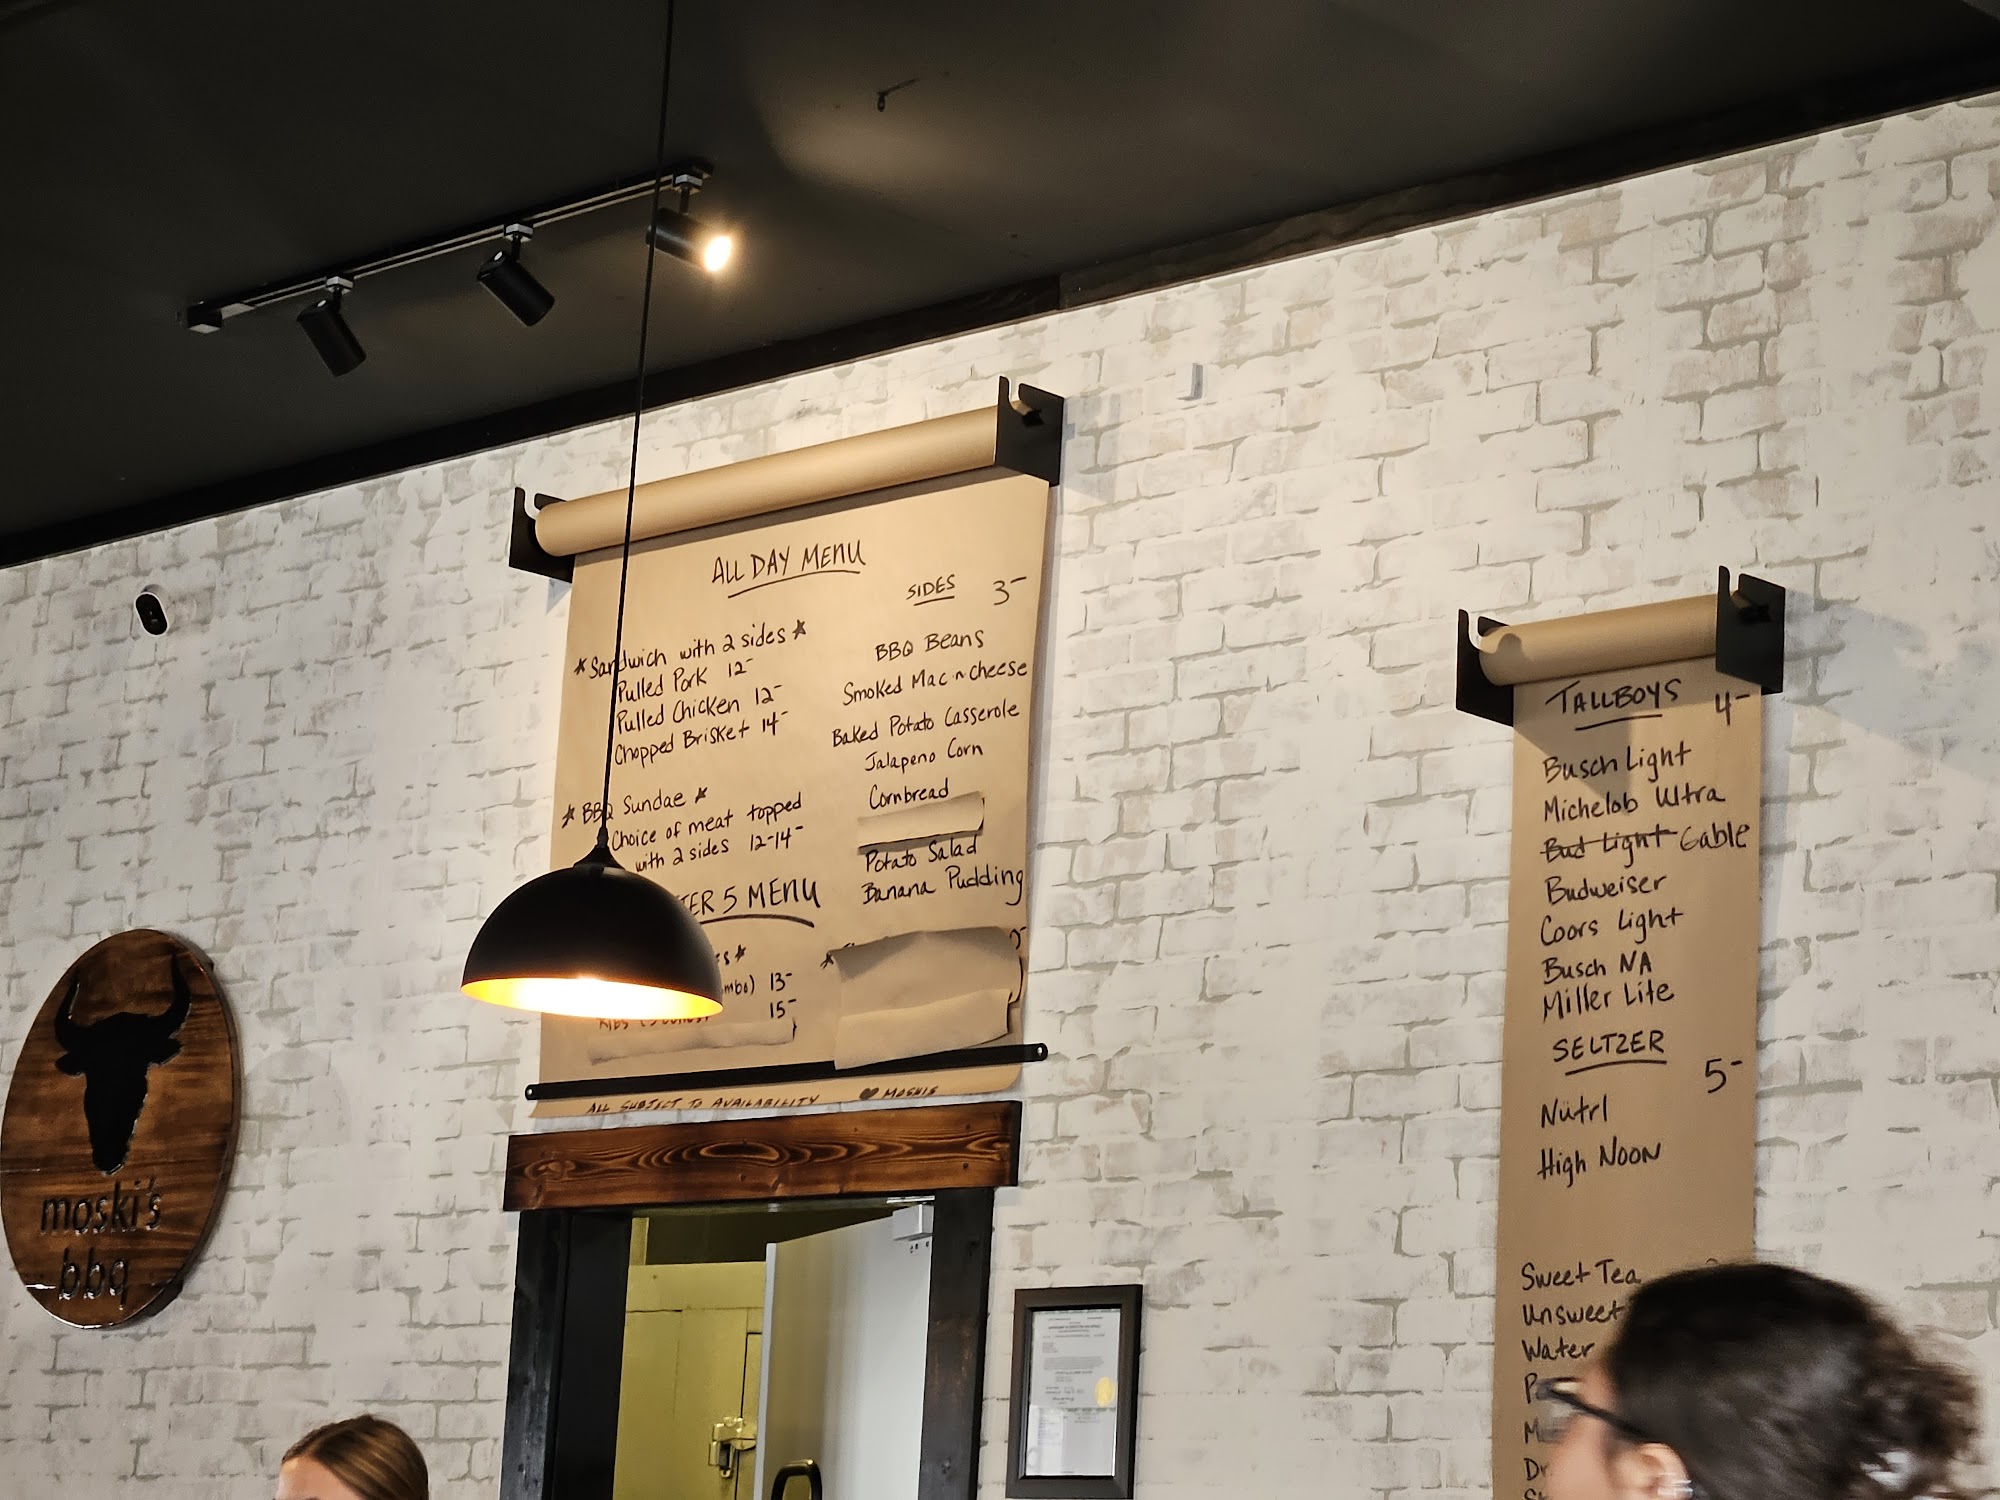 ALL DAY MENU
★ Sandwich with 2 sides ★
Pulled Pork 12-
Pulled Chicken 12-
Chopped Brisket 14-
★ BBQ Sundae ★
Choice of meat topped
with 2 sides 12-14-
5 MENU
13-
15-
SIDES 3-
BBQ Beans
Smoked Mac n cheese
Baked Potato Casserole
Jalapeno Corn
Cornbread
Potato Salad
Banana Pudding
ALL SUBJECT TO AVAILABILITY ♥ MOSKIS
TALLBOYS 4-
Busch Light
Michelob Ultra
Bud Light Gable
Budweiser
Coors Light
Busch NA
Miller Lite
SELTZER
5-
Nütrl
High NOON
Sweet Tea
Unsweet
Water
moski's
bbq